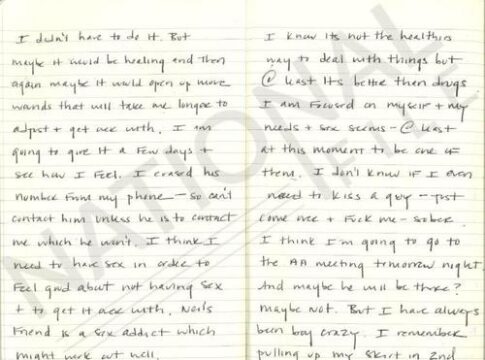 I didn't have to do it. But
maybe it would be healing and then
again maybe it would open up more
wounds that will take me longer to
adjust + get over with. I am
going to give it a few days +
see how I feel. I erased his
number from my phone — so can't
contact him unless he is to contact
me which he won't. I think I
need to have sex in order to
feel good about not having sex
+ to get it over with. Neil's
friend is a sex addict which
might work out well.
I know its not the healthiest
way to deal with things but
@ least its better than drugs
I am focused on myself + my
needs + sex seems - @ least
at this moment to be one of
them. I don't know if I even
need to kiss a guy - just
come over + fuck me - sober.
I think I'm going to go to
the AA meeting tomorrow night.
And maybe he will be there?
maybe not. But I have always
been boy crazy. I remember
pulling up my skirt in 2nd
NATIONAL